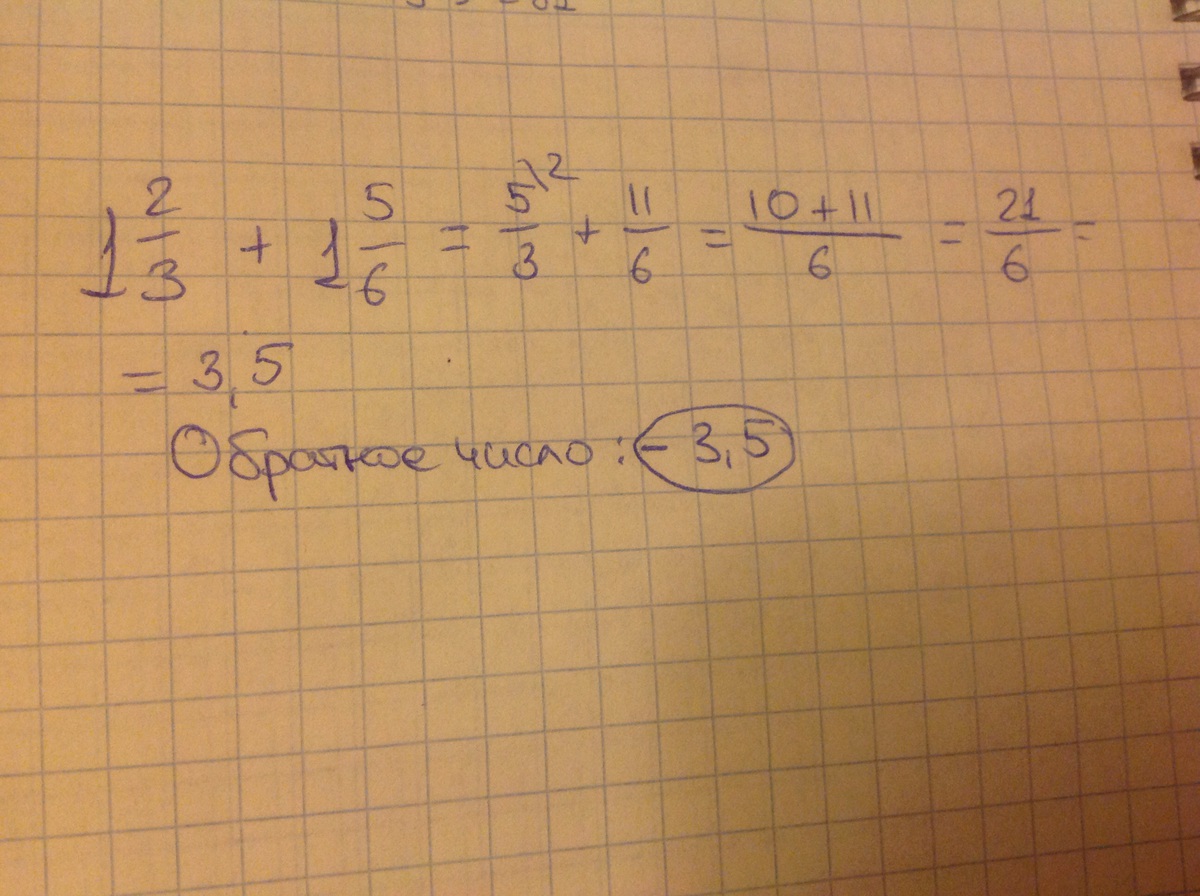 1 2/3 + 1 5/6 = 5\2/3 + 11/6 = 10+11/6 = 21/6 =
= 3,5
Обратное число: - 3,5